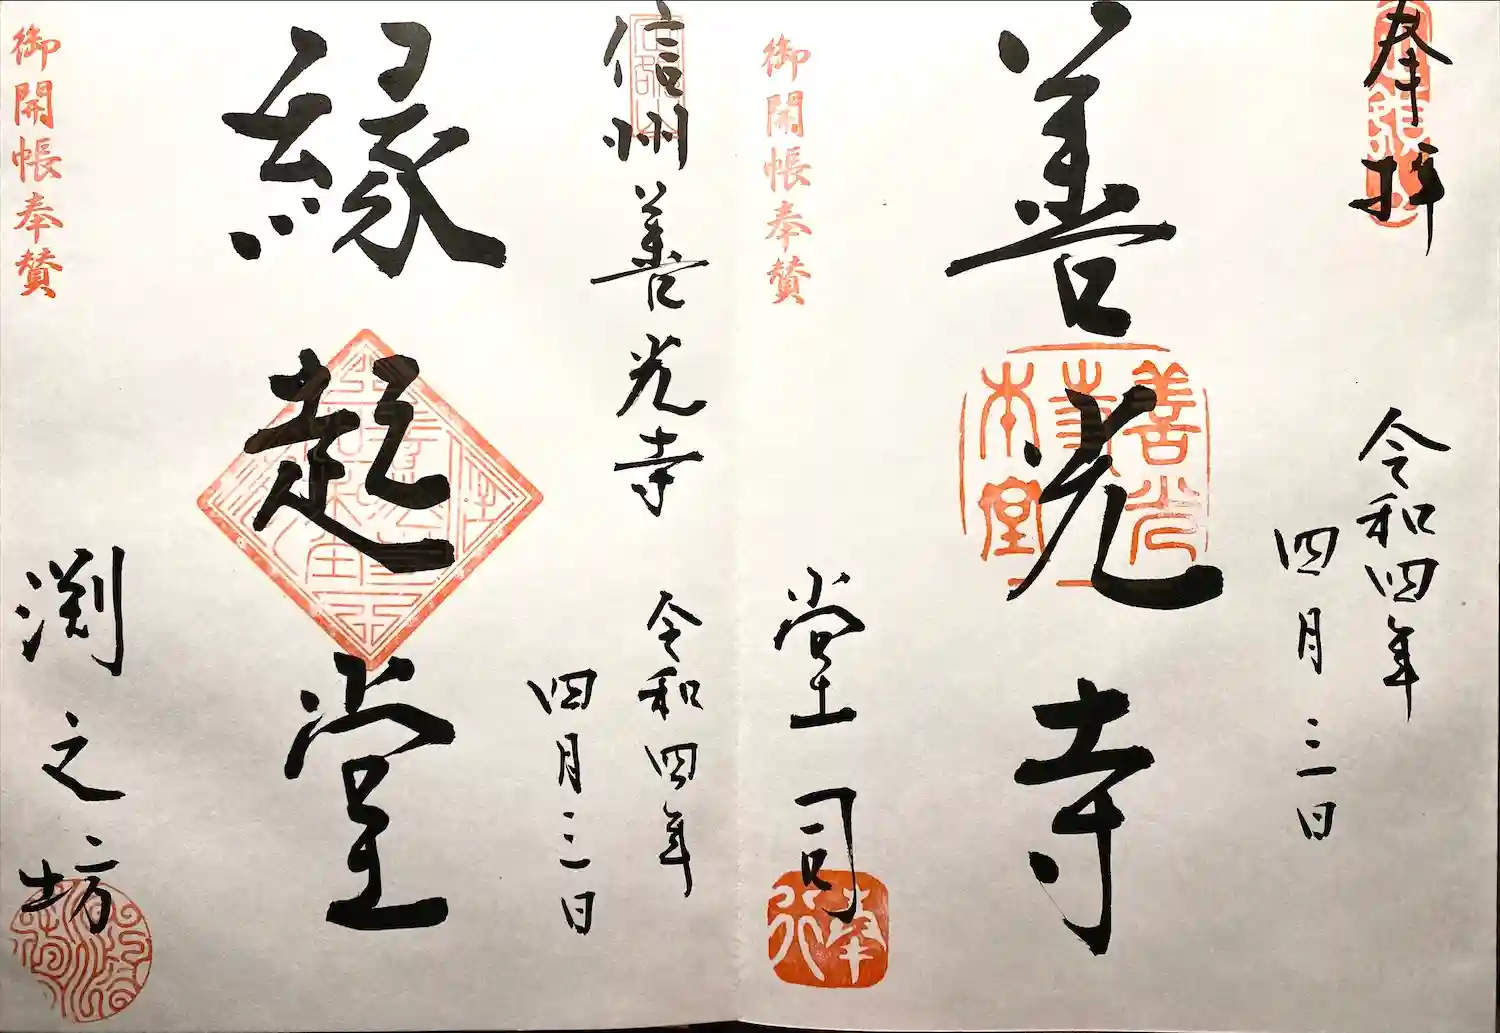 奉拝
令和四年
四月三日
善光寺
善光寺本堂
御開帳奉賛
堂司
奉行
信州善光寺
令和四年
四月三日
縁起堂
御開帳奉賛
渕之坊